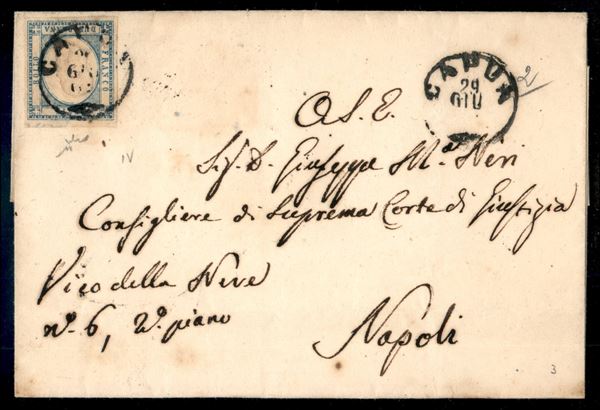 FRANCO
BOLLO
GIU
29
GIU
2
A S. E.
Sig. D. Giuseppe Ma. Neri
Consigliere di Suprema Corte di Giustizia
Vico della Neve
No. 6, 2o. piano
Napoli
IV
3